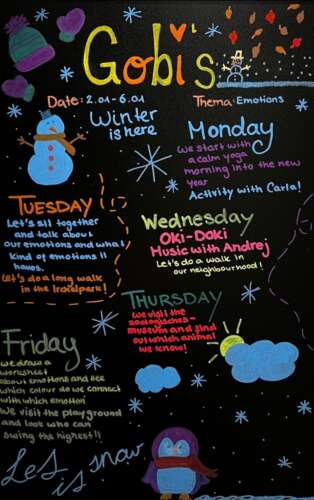 Gobi's
Date: 2.01-6.01
Thema: Emotions
Winter
is here
Monday
We start with
a calm yoga
morning into the new
year
Activity with Carla!
TUESDAY
Let's sit together
and talk about
our emotions and what
kind of emotions it
haves.
Let's do a long walk
in the Irchelpark!
Wednesday
Oki-Doki
Music with Andrej
Let's do a walk in
our neighbourhood!
THURSDAY
We visit the
zoologisches-
museum and find
out which animal
we know!
Friday
We draw a
worksheet
about emotions and see
which colour do we connect
with which emotion
We visit the playground
and look who can
swing the highest!!
Let
is snow